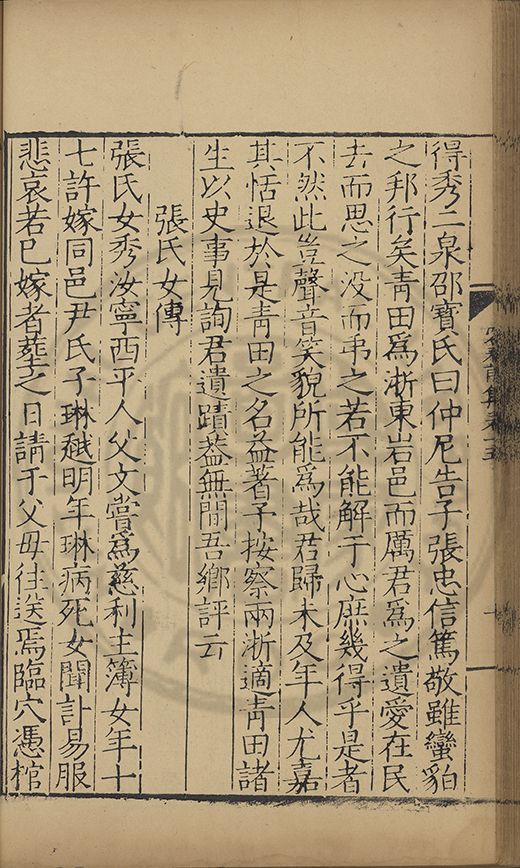 得秀二泉邵寶氏曰仲尼告子張忠信篤敬雖蠻貊
之邦行矣青田為浙東岩邑而厲君為之遺愛在民
去而思之沒而弔之若不能解于心庶幾得乎是者
不然此豈聲音笑貌所能為哉君歸未及年人尤嘉
其恬退於是青田之名益著予按察兩浙適青田諸
生以史事見詢君遺蹟葢無間吾鄉評云
張氏女傳
張氏女秀汝寧西平人父文嘗為慈利主簿女年十
七許嫁同邑尹氏子琳越明年琳病死女聞訃易服
悲哀若已嫁者葬之日請于父母往送焉臨穴憑棺